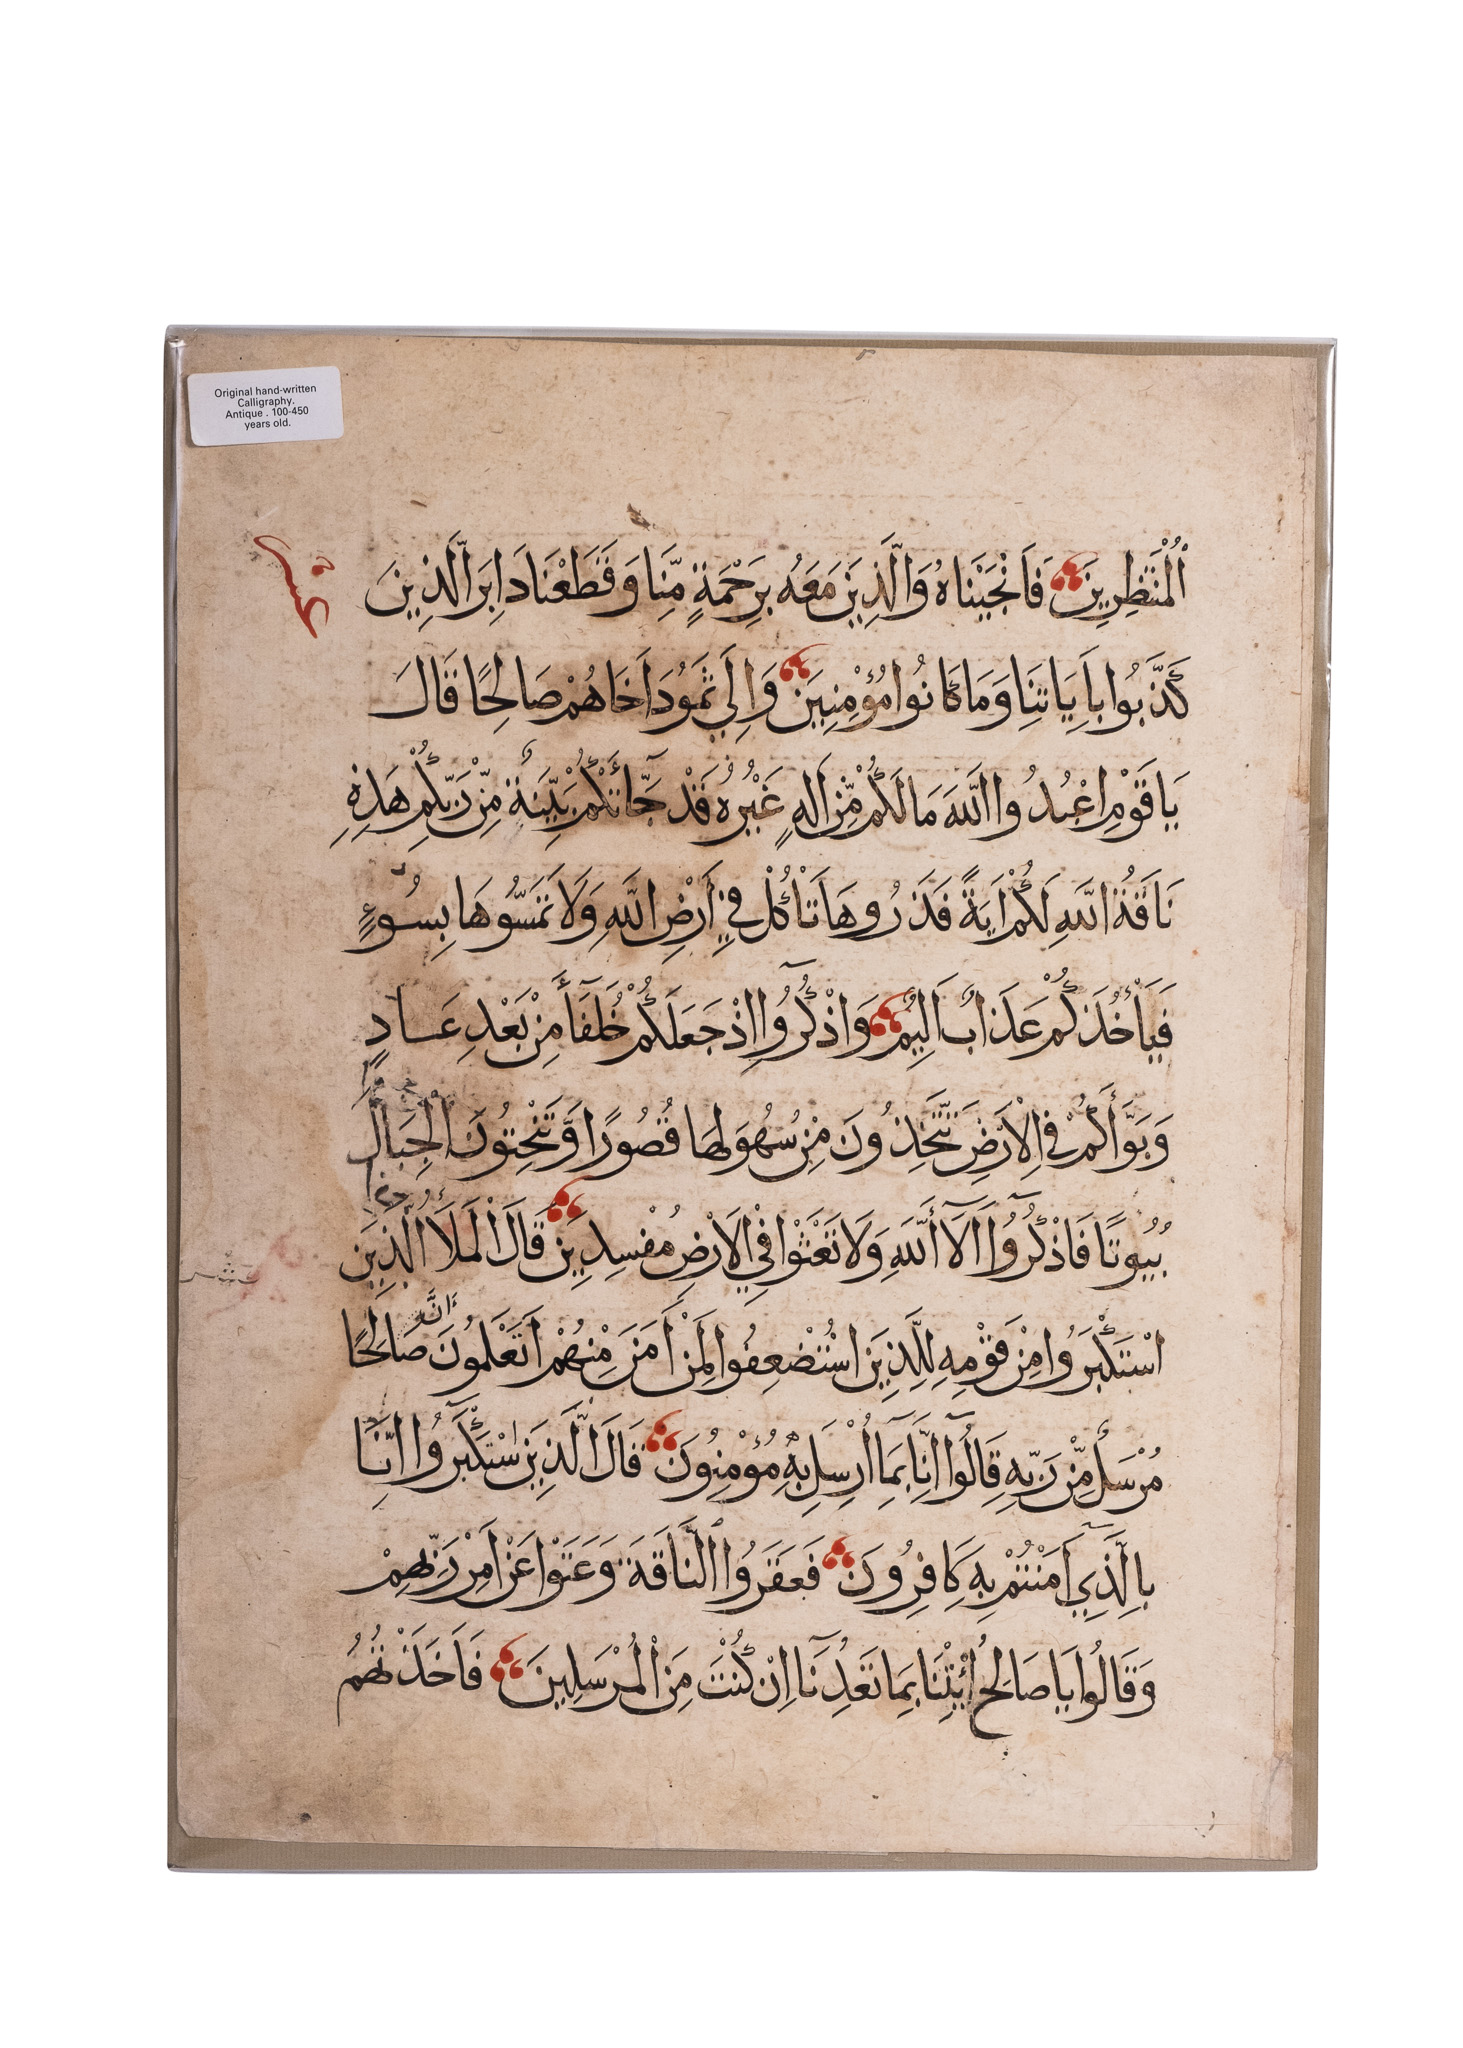 Original hand-written
Calligraphy.
Antique . 100-450
years old.
ٱلْمُنْتَظِرِينَ فَاَنْجَيْنَاهُ وَالَّذِينَ مَعَهُ بِرَحْمَةٍ مِّنَا وَقَطَعْنَا دَابِرَ الَّذِينَ
كَذَّبُوا بِاَيَاتِنَا وَمَا كَانُوا مُؤْمِنِينَ وَاِلَي ثَمُودَ اَخَاهُمْ صَالِحًا قَالَ
يَاقَوْمِ اعْبُدُوا اللَّهَ مَا لَكُمْ مِّنْ اَلِهٍ غَيْرُهُ قَدْ جَّاءَتْكُمْ بَيِّنَةٌ مِّنْ رَبِّكُمْ هَذِهِ
نَاقَةُ اللَّهِ لَكُمْ اَيَةً فَذَرُوهَا تَأْكُلْ فِي اَرْضِ اللَّهِ وَلَا تَمَسُّوهَا بِسُوءٍ
فَيَأْخُذَكُمْ عَذَابٌ اَلِيمٌ وَاذْكُرُوا اِذْ جَعَلَكُمْ خُلَفَآءَ مِنْ بَعْدِ عَادٍ
وَبَوَّأَكُمْ فِي الْاَرْضِ تَتَّخِذُونَ مِنْ سُهُولِهَا قُصُورًا وَّتَنْحِتُونَ الْجِبَالَ
بُيُوتًا فَاذْكُرُوا اَلَآءَ اللَّهِ وَلَا تَعْثَوْا فِي الْاَرْضِ مُفْسِدِينَ قَالَ الْمَلَأُ الَّذِينَ
اسْتَكْبَرُوا مِنْ قَوْمِهِ لِلَّذِينَ اسْتُضْعِفُوا لِمَنْ اَمَنَ مِنْهُمْ اَتَعْلَمُونَ اَنَّ صَالِحًا
مُرْسَلٌ مِّنْ رَبِّهِ قَالُوآ اِنَّا بِمَآ اُرْسِلَ بِهِ مُؤْمِنُونَ قَالَ الَّذِينَ اسْتَكْبَرُوا اِنَّا
بِالَّذِي اَمَنْتُمْ بِهِ كَافِرُونَ فَعَقَرُوا ٱلنَّاقَةَ وَعَتَوْا عَنْ اَمْرِ رَبِّهِمْ
وَقَالُوا يَا صَالِحُ ائْتِنَا بِمَا تَعِدُنَآ اِنْ كُنْتَ مِنَ الْمُرْسَلِينَ فَاَخَذَتْهُمُ